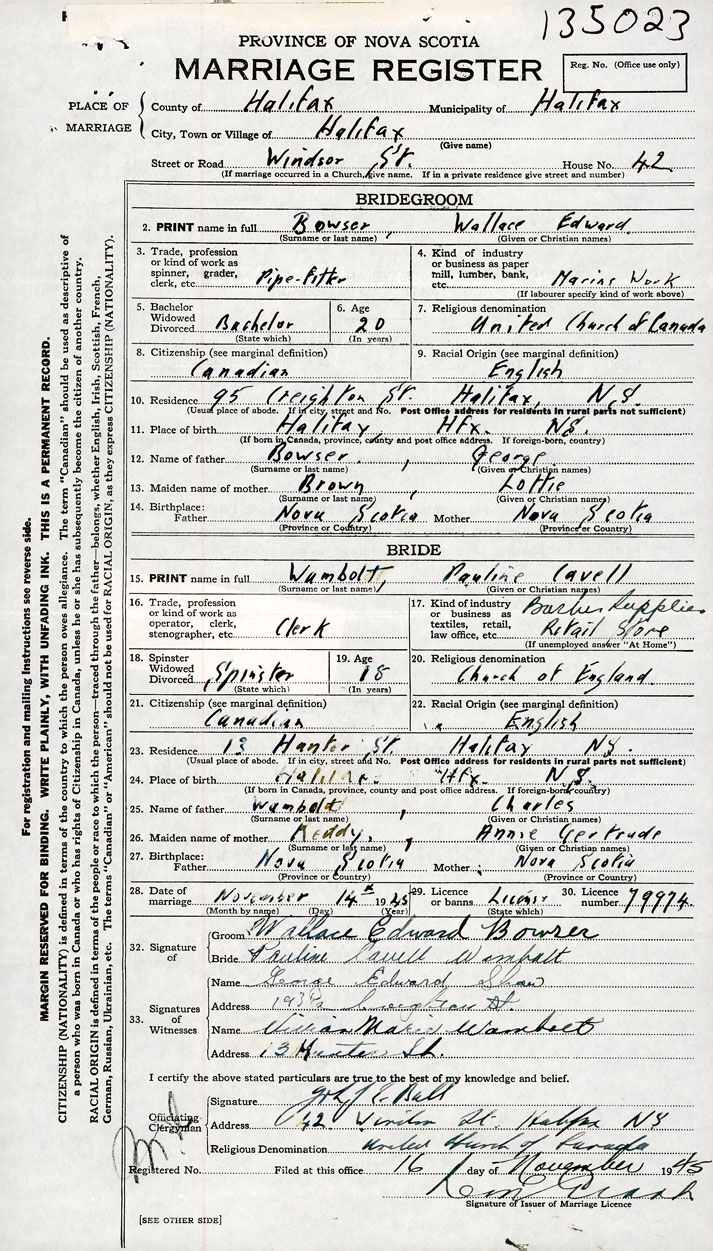 135023
PROVINCE OF NOVA SCOTIA
MARRIAGE REGISTER
Reg. No. (Office use only)
PLACE OF MARRIAGE
County of Halifax Municipality of Halifax
City, Town or Village of Halifax
(Give name)
Street or Road Windsor St. House No. 42
(If marriage occurred in a Church, give name. If in a private residence give street and number)
BRIDEGROOM
2. PRINT name in full Bowser, Wallace Edward.
(Surname or last name) (Given or Christian names)
3. Trade, profession or kind of work as spinner, grader, clerk, etc. Pipe-Fitter
4. Kind of industry or business as paper mill, lumber, bank, etc. Marine Work
(If labourer specify kind of work above)
5. Bachelor Widowed Divorced Bachelor
(State which)
6. Age 20
(In years)
7. Religious denomination
United Church of Canada
8. Citizenship (see marginal definition)
Canadian
9. Racial Origin (see marginal definition)
English
10. Residence 95 Creighton St. Halifax, N.S.
(Usual place of abode. If in city, street and No. Post Office address for residents in rural parts not sufficient)
11. Place of birth Halifax Hfx. N.S.
(If born in Canada, province, county and post office address. If foreign-born, country)
12. Name of father Bowser, George
(Surname or last name) (Given or Christian names)
13. Maiden name of mother Brown, Lottie
(Surname or last name) (Given or Christian names)
14. Birthplace: Father Nova Scotia Mother Nova Scotia
(Province or Country) (Province or Country)
BRIDE
15. PRINT name in full Wambolt, Pauline Cavell
(Surname or last name) (Given or Christian names)
16. Trade, profession or kind of work as operator, clerk, stenographer, etc. Clerk
17. Kind of industry or business as textiles, retail, law office, etc. Barber Supplies Retail Store
(If unemployed answer "At Home")
18. Spinster Widowed Divorced Spinster
(State which)
19. Age 18
(In years)
20. Religious denomination
Church of England.
21. Citizenship (see marginal definition)
Canadian
22. Racial Origin (see marginal definition)
English
23. Residence 13 Hunter St. Halifax N.S.
(Usual place of abode. If in city, street and No. Post Office address for residents in rural parts not sufficient)
24. Place of birth Halifax Hfx. N.S.
(If born in Canada, province, county and post office address. If foreign-born, country)
25. Name of father Wambolt, Charles
(Surname or last name) (Given or Christian names)
26. Maiden name of mother Reddy, Annie Gertrude
(Surname or last name) (Given or Christian names)
27. Birthplace: Father Nova Scotia Mother Nova Scotia
(Province or Country) (Province or Country)
28. Date of marriage November 14th 1945
(Month by name) (Day) (Year)
29. Licence or banns License
(State which)
30. Licence number 79974
32. Signature of
Groom Wallace Edward Bowser
Bride Pauline Cavell Wambolt
33. Signatures of Witnesses
Name George Edward Shaw
Address St.
Name Vivian Marie Wambolt
Address 13 Hunter St.
I certify the above stated particulars are true to the best of my knowledge and belief.
Officiating Clergyman
Signature Ball
Address 42 Windsor St. Halifax NS
Religious Denomination United Church of Canada
Registered No. Filed at this office 16 day of November 1945
Signature of Issuer of Marriage Licence
[SEE OTHER SIDE]
For registration and mailing instructions see reverse side.
MARGIN RESERVED FOR BINDING. WRITE PLAINLY, WITH UNFADING INK. THIS IS A PERMANENT RECORD.
CITIZENSHIP (NATIONALITY) is defined in terms of the country to which the person owes allegiance. The term "Canadian" should be used as descriptive of
a person who was born in Canada or who has rights of Citizenship in Canada, unless he or she has subsequently become the citizen of another country.
RACIAL ORIGIN is defined in terms of the people or race to which the person—traced through the father—belongs, whether English, Irish, Scottish, French,
German, Russian, Ukrainian, etc. The terms "Canadian" or "American" should not be used for RACIAL ORIGIN, as they express CITIZENSHIP (NATIONALITY).